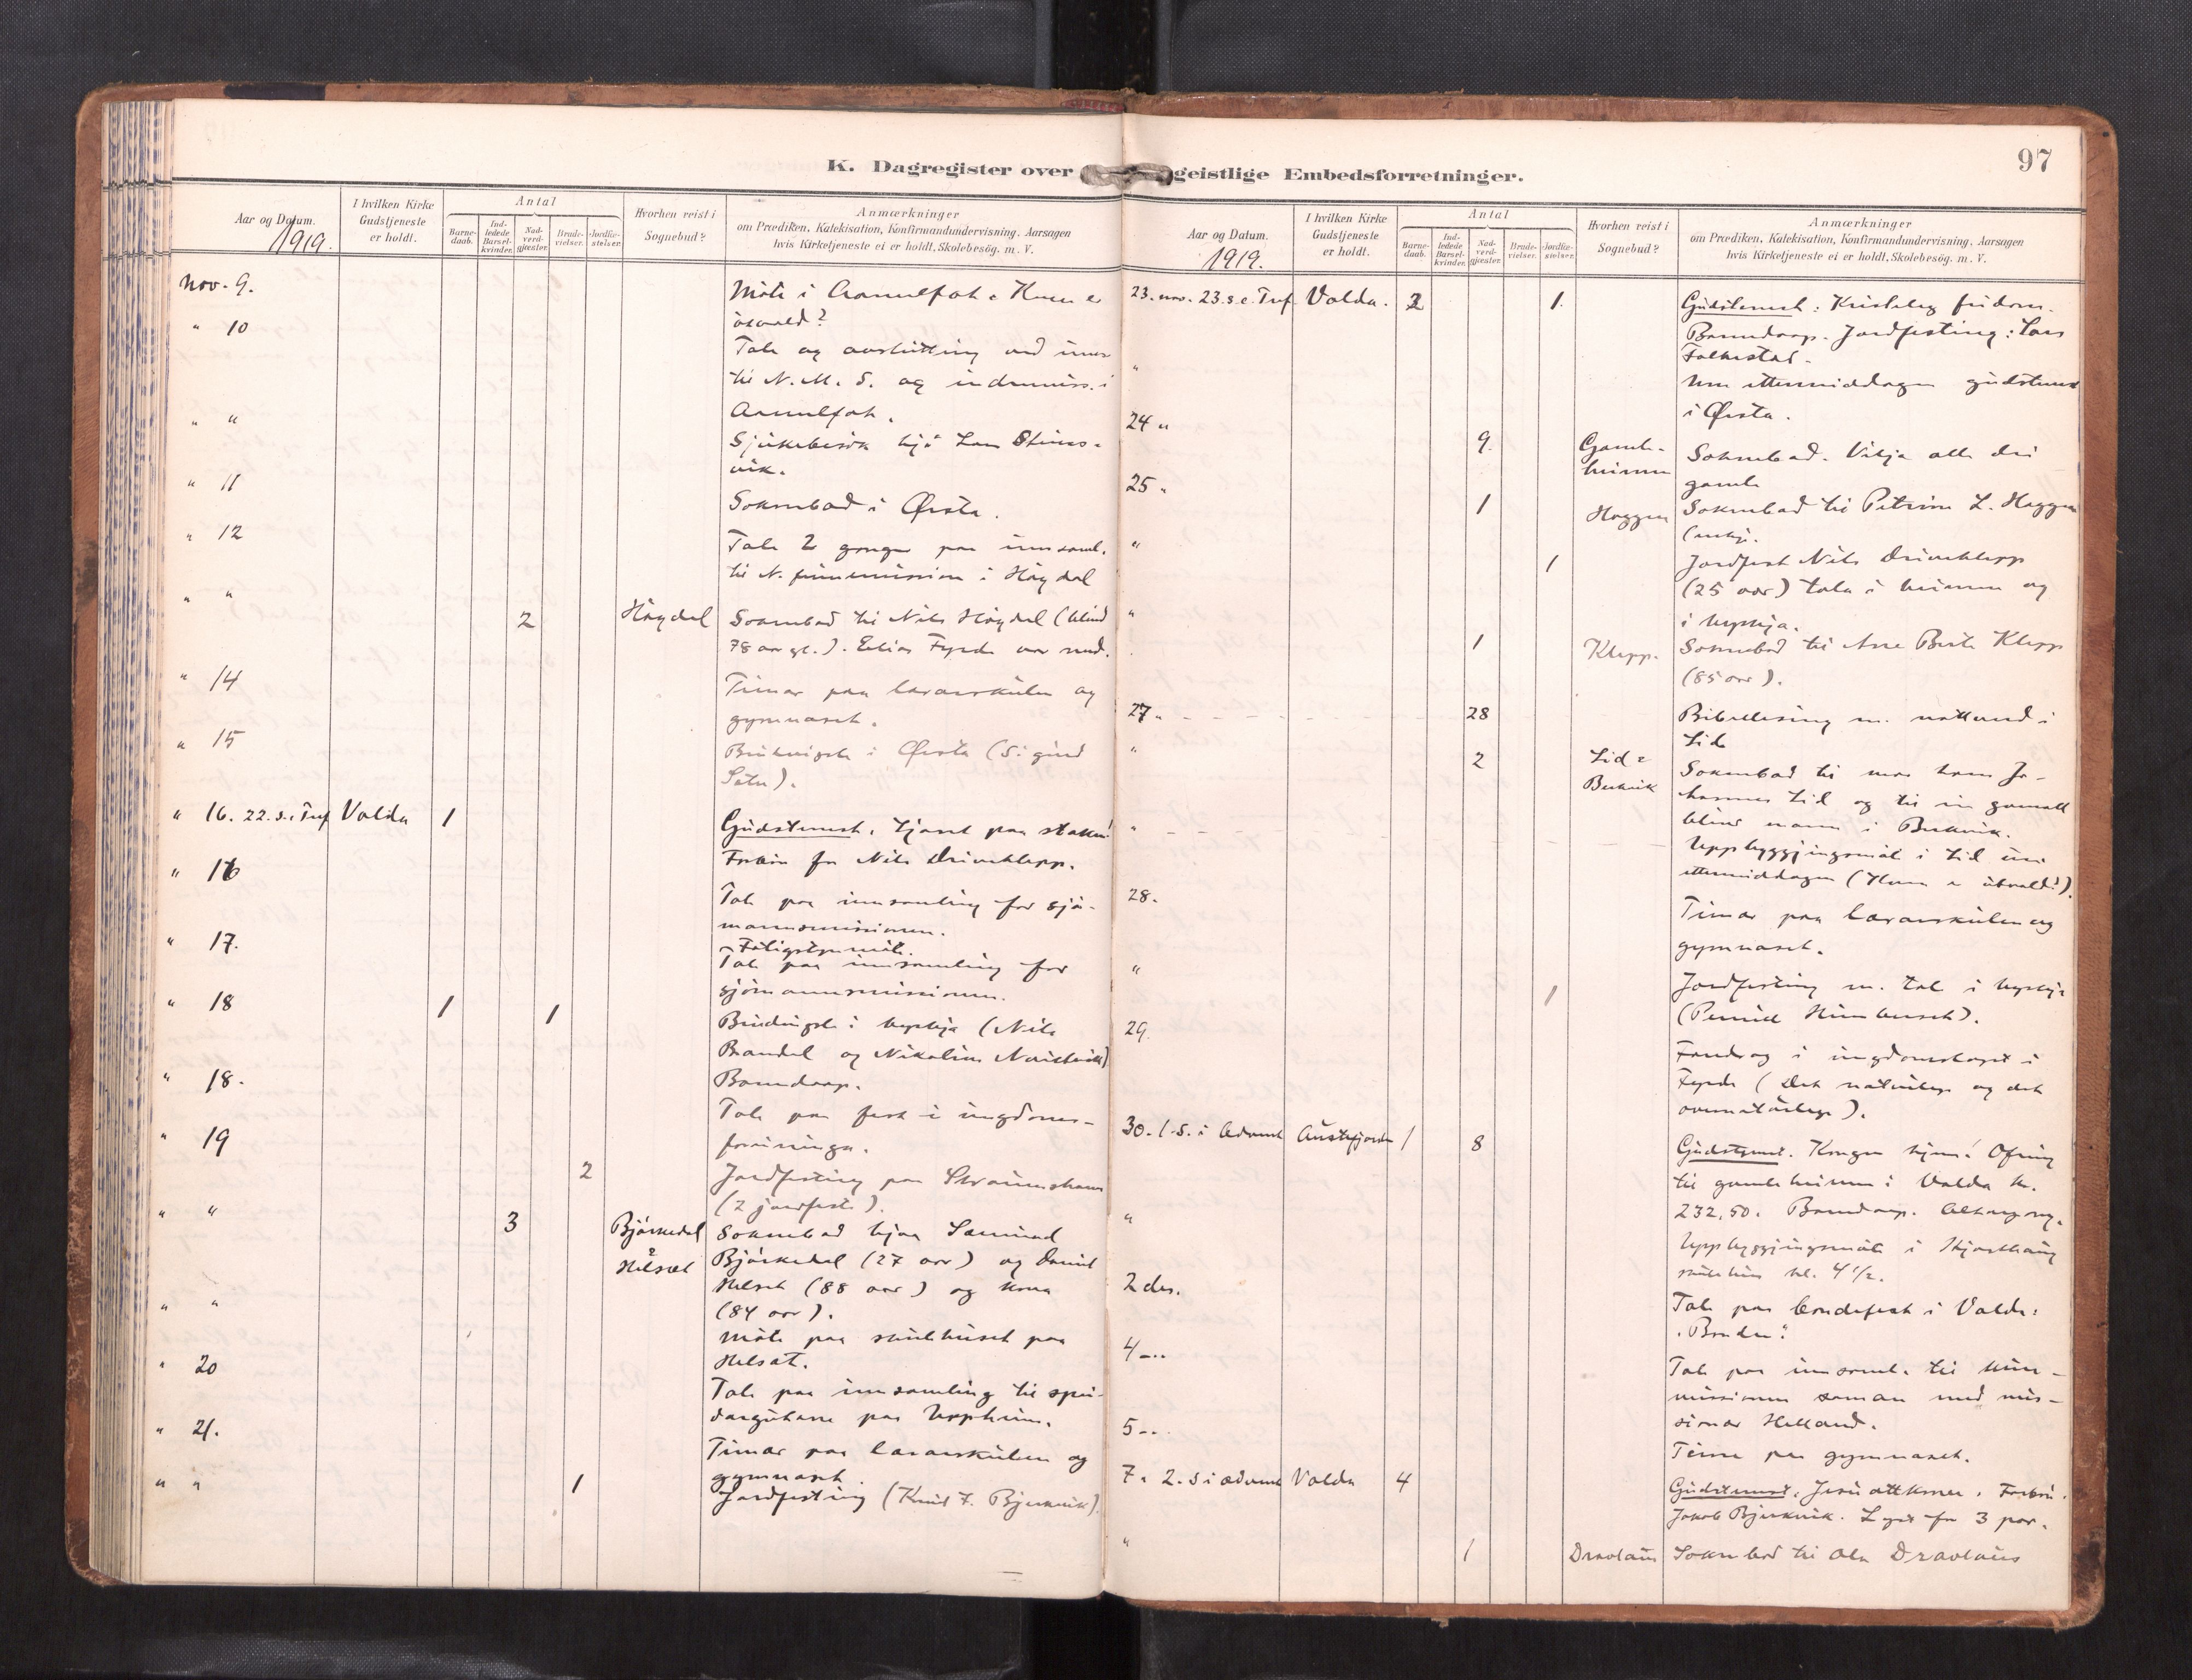 97
K. Dagregister over geistlige Embedsforretninger.
Aar og Datum.
1919.
I hvilken Kirke Gudstjeneste er holdt.
Antal
Barne-daab.
Ind-ledede Barsel-kvinder.
Nad-verd-gjæster.
Brude-vielser.
Jordfæ-stelser.
Hvorhen reist i Sognebud?
Anmærkninger
om Prædiken, Katekisation, Konfirmandundervisning. Aarsagen
hvis Kirketjeneste ei er holdt, Skolebesög. m. V.
Nov. 9.
Möte i
" 10
Tale og avslutting ved
til N. M. S. og indremiss. i
" "
Sjukebesök hjå Lars
vik.
" 11
Soknebod i Ørsta.
" 12
Tale 2 gonger paa innsaml.
til N. finnemission i Höydal
" " 2 Höydal
Soknebod til Nils Höydal (blind
78 aar gl.). Elias Fyrde var med.
" 14
Timar paa lærarskulen og
gymnaset.
" 15
Brudvigsle i Ørsta (Sigurd
Sætre).
" 16. 22. s. e. Tref Volda 1
Gudstenest.
Forbön for Nils Driveklepp.
" 16
Tale paa innsamling for sjö-
mannsmissionen.
" 17.
Tale paa innsamling for
sjömannsmissionen.
" 18 1 1
Brudvigsle i kyrkja (Nils
og Nikoline
Barndaap.
" 18.
Tale paa fest i ungdoms-
foreininga.
" 19 2
Jordfesting paa Straumshamn
(2 jordfeste).
" " 3 Björkedal
Helset
Soknebod hjaa
Björkedal (27 aar) og
Helset (88 aar) og kona
(84 aar).
" "
Möte paa skulehuset paa
Helset.
" 20
Tale paa innsamling til spe-
dargutane paa Uppheim.
" 21.
Timar paa lærarskulen og
gymnaset.
" " 1
Jordfesting (Knut J. Bjerknik).
Aar og Datum.
1919.
I hvilken Kirke Gudstjeneste er holdt.
Antal
Barne-daab.
Ind-ledede Barsel-kvinder.
Nad-verd-gjæster.
Brude-vielser.
Jordfæ-stelser.
Hvorhen reist i Sognebud?
Anmærkninger
om Prædiken, Katekisation, Konfirmandundervisning. Aarsagen
hvis Kirketjeneste ei er holdt, Skolebesög. m. V.
23. nov. 23. s. e. Tref. Volda. 2 1.
Gudstenest: Kristeleg fridom.
Barndaap. Jordfesting: Lars
Folkestad.
"
Um ettermiddagen gudstenest
i Ørsta.
24 " 9. Gamle-
heimen
Soknebod. Vitja alle dei
gamle
25 " 1 Haggen
Soknebod til Petrine L. Haggen
" 1
Jordfest Nils Driveklepp
(25 aar) tala i heimen og
i kyrkja.
" 1 Klepp.
Soknebod til Ane Berte Klepp
(85 aar).
27 " 28
Bibellesing m. nattverd i
Lid
" 2 Lid &
Soknebod til mor hans Jo-
hannes Lid og til ein gamall
blind mann i
"
Uppbyggjingsmöte i Lid um
ettermiddagen
28.
Timar paa lærarskulen og
gymnaset.
" 1
Jordfesting m. tale i kyrkja
29.
Foredrag i ungdomslaget i
Fyrde (Det naturlege og det
overnaturlege).
30. 1. S. i Advent Austefjorden 1 8
Gudstenest. Kongen kjem! Ofring
til gamleheimen i Volda kr.
232,50. Barndaap. Altargang.
"
Uppbyggjingsmöte i
skulehus kl. 4 1/2.
2 des.
Tale paa bondefest i Volda:
"Bonden".
4 "
Tale paa innsaml. til Kina-
missionen saman med mis-
sionær Helland.
5 "
Time paa gymnaset.
7. 2. S i advent Volda 4
Gudstenest. Jesu attkome. Forbön.
Jakob Bjerknik. Lyst for 3 par.
" 1 Dravlaus
Soknebod til Ola Dravlaus